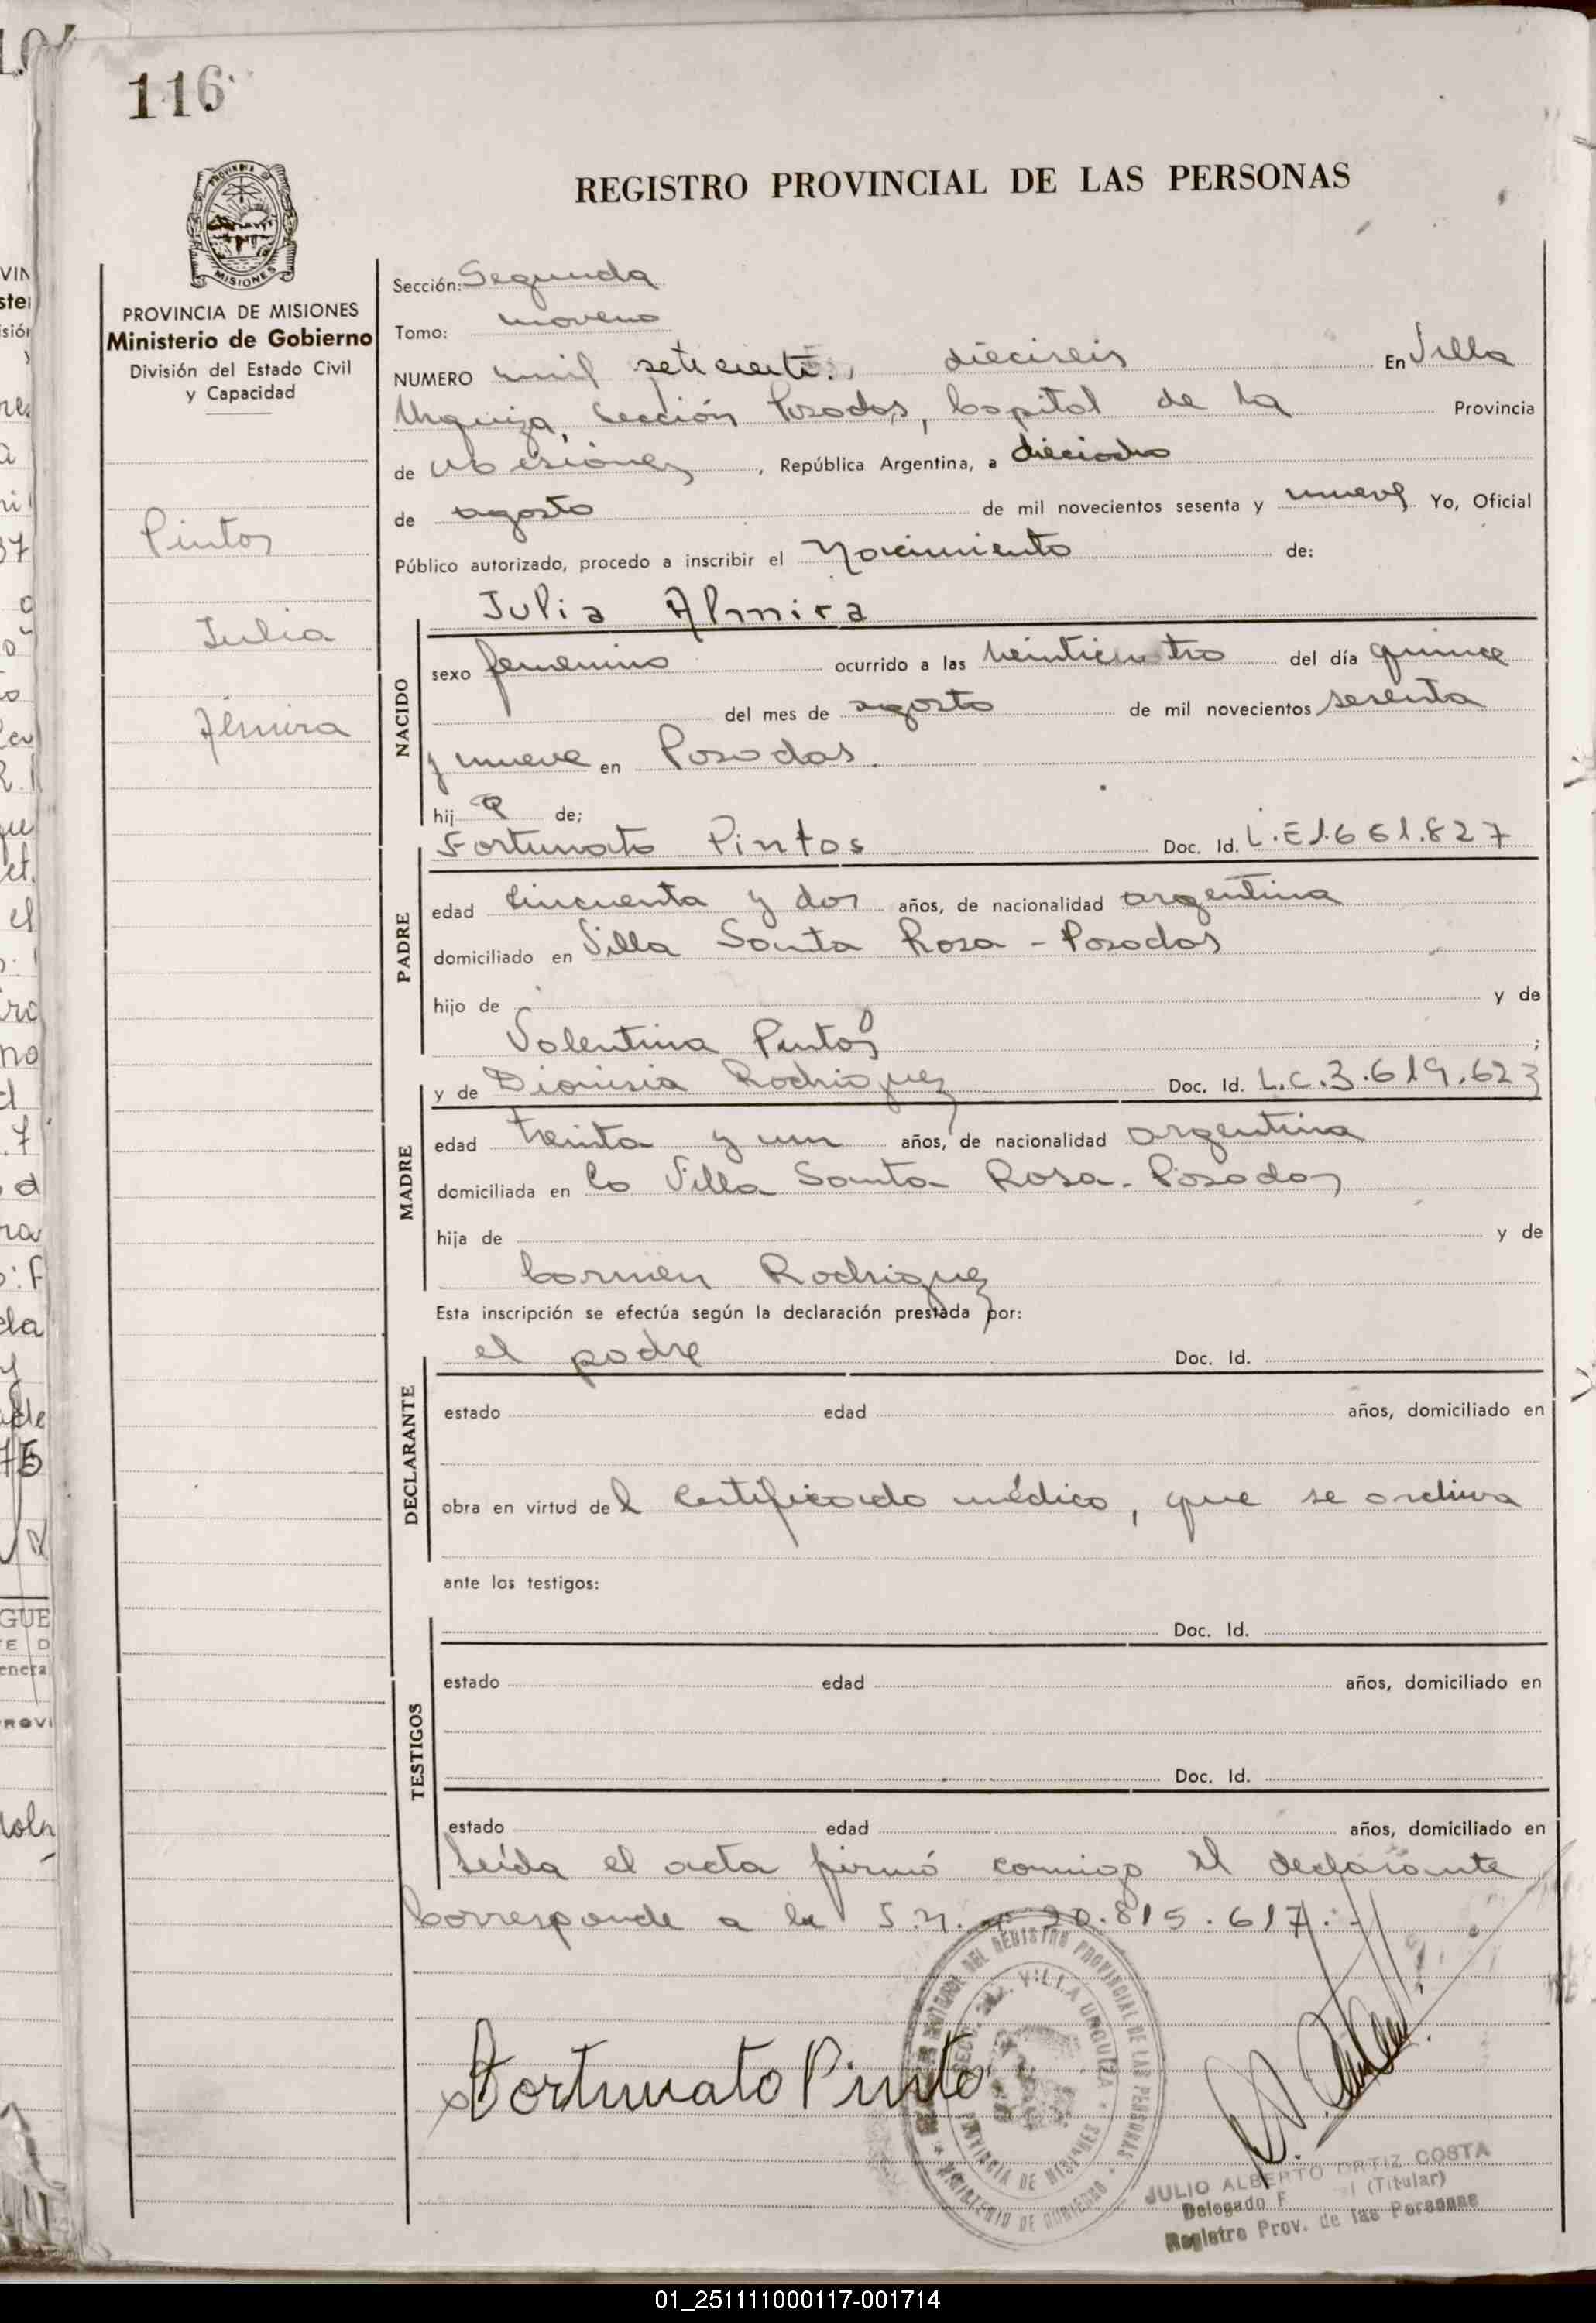 116
REGISTRO PROVINCIAL DE LAS PERSONAS
PROVINCIA
MISIONES
PROVINCIA DE MISIONES
Ministerio de Gobierno
División del Estado Civil
y Capacidad
Pintos
Julia
Almira
Sección: Segunda
Tomo: noveno
NUMERO mil setecientos dieciseis En Villa
Urquiza, Sección Posadas, Capital de la Provincia
de Misiones, República Argentina, a dieciocho
de agosto de mil novecientos sesenta y nueve Yo, Oficial
Público autorizado, procedo a inscribir el Nacimiento de:
Julia Almira
NACIDO
sexo femenino ocurrido a las veinticuatro del día quince
del mes de agosto de mil novecientos sesenta
y nueve en Posadas.
hija de;
Fortunato Pintos Doc. Id. L.E.1.661.827
PADRE
edad cincuenta y dos años, de nacionalidad argentina
domiciliado en Villa Santa Rosa - Posadas
hijo de y de
Valentina Pintos ;
y de Dionisia Rodriguez Doc. Id. L.C.3.619.623
MADRE
edad treinta y un años, de nacionalidad argentina
domiciliada en la Villa Santa Rosa - Posadas
hija de y de
Carmen Rodriguez
Esta inscripción se efectúa según la declaración prestada por:
el padre Doc. Id.
DECLARANTE
estado edad años, domiciliado en
obra en virtud del certificado médico, que se archiva
ante los testigos:
Doc. Id.
TESTIGOS
estado edad años, domiciliado en
Doc. Id.
estado edad años, domiciliado en
Leída el acta firmó conmigo el declarante
Corresponde a la 20.815.617.-
Fortunato Pinto
DEL REGISTRO PROVINCIAL DE LAS PERSONAS
VILLA URQUIZA
PROVINCIA DE MISIONES
MINISTERIO DE GOBIERNO
JULIO ALBERTO ORTIZ COSTA
Delegado (Titular)
Registro Prov. de las Personas
01_251111000117-001714